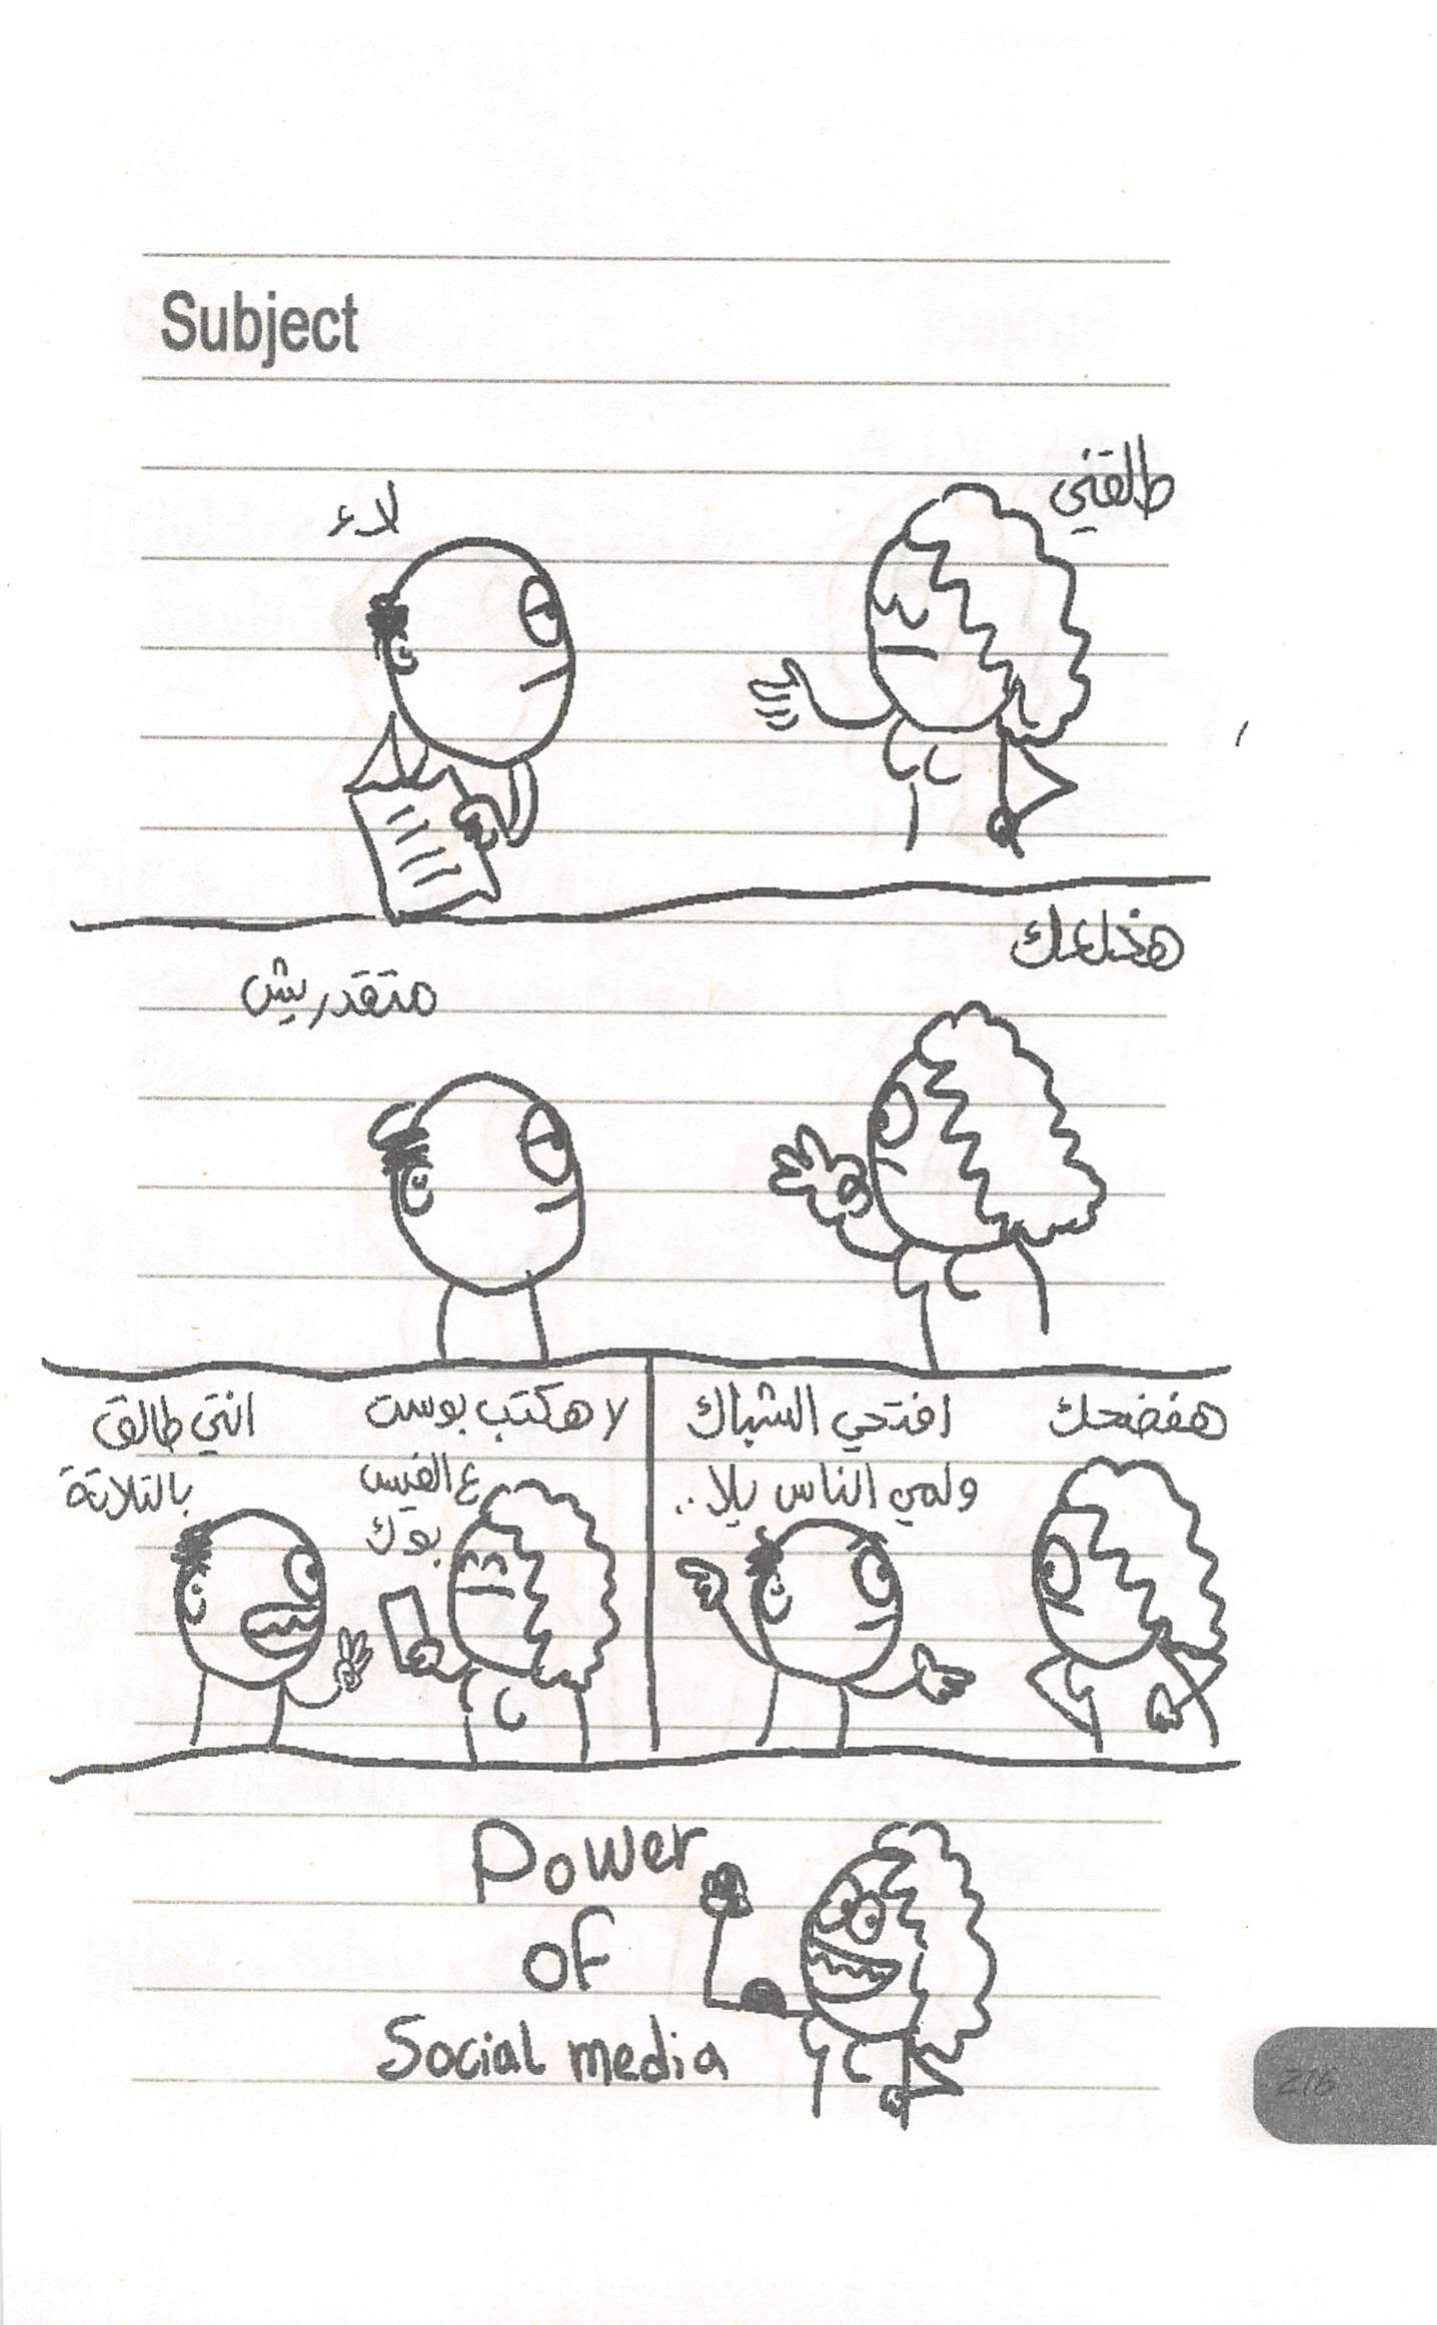 Subject
طلقني
لاء
هخلعك
متقدريش
هفضحك
افتحي الشباك
ولمي الناس يلا..
لا هكتب بوست
ع الفيس
بوك
انتي طالق
بالتلاتة
Power
of
Social media
216